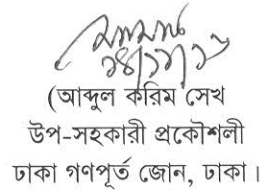 ১৪/১১/১৬
(আব্দুল করিম সেখ
উপ-সহকারী প্রকৌশলী
ঢাকা গণপূর্ত জোন, ঢাকা।